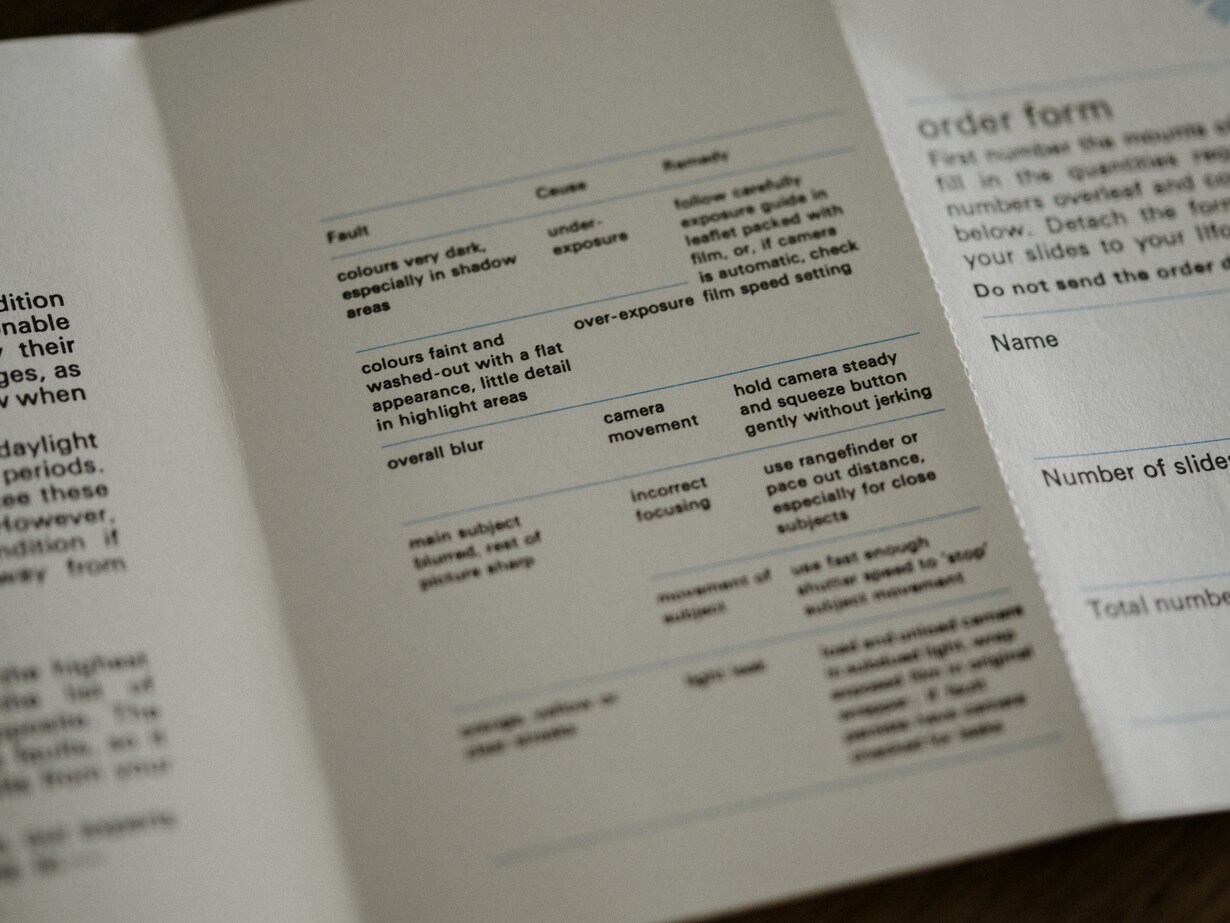 dition
nable
their
ges, as
when
daylight
periods.
ee these
However,
ndition if
away from
the highest
the list of
The
faults, so
from your
Fault
Cause
Remedy
colours very dark,
especially in shadow
areas
under-
exposure
follow carefully
exposure guide in
leaflet packed with
film, or, if camera
is automatic, check
film speed setting
colours faint and
washed-out with a flat
appearance, little detail
in highlight areas
over-exposure
overall blur
camera
movement
hold camera steady
and squeeze button
gently without jerking
main subject
blurred, rest of
picture sharp
incorrect
focusing
use rangefinder or
pace out distance,
especially for close
subjects
movement of
subject
use fast enough
shutter speed to 'stop'
subject movement
orange, yellow or
light leak
load and unload camera
in subdued light, wrap
exposed film in original
order form
First number the mounts
fill in the quantities
numbers overleaf and
below. Detach the form
your slides to your
Do not send the order
Name
Number of slides
Total numbe